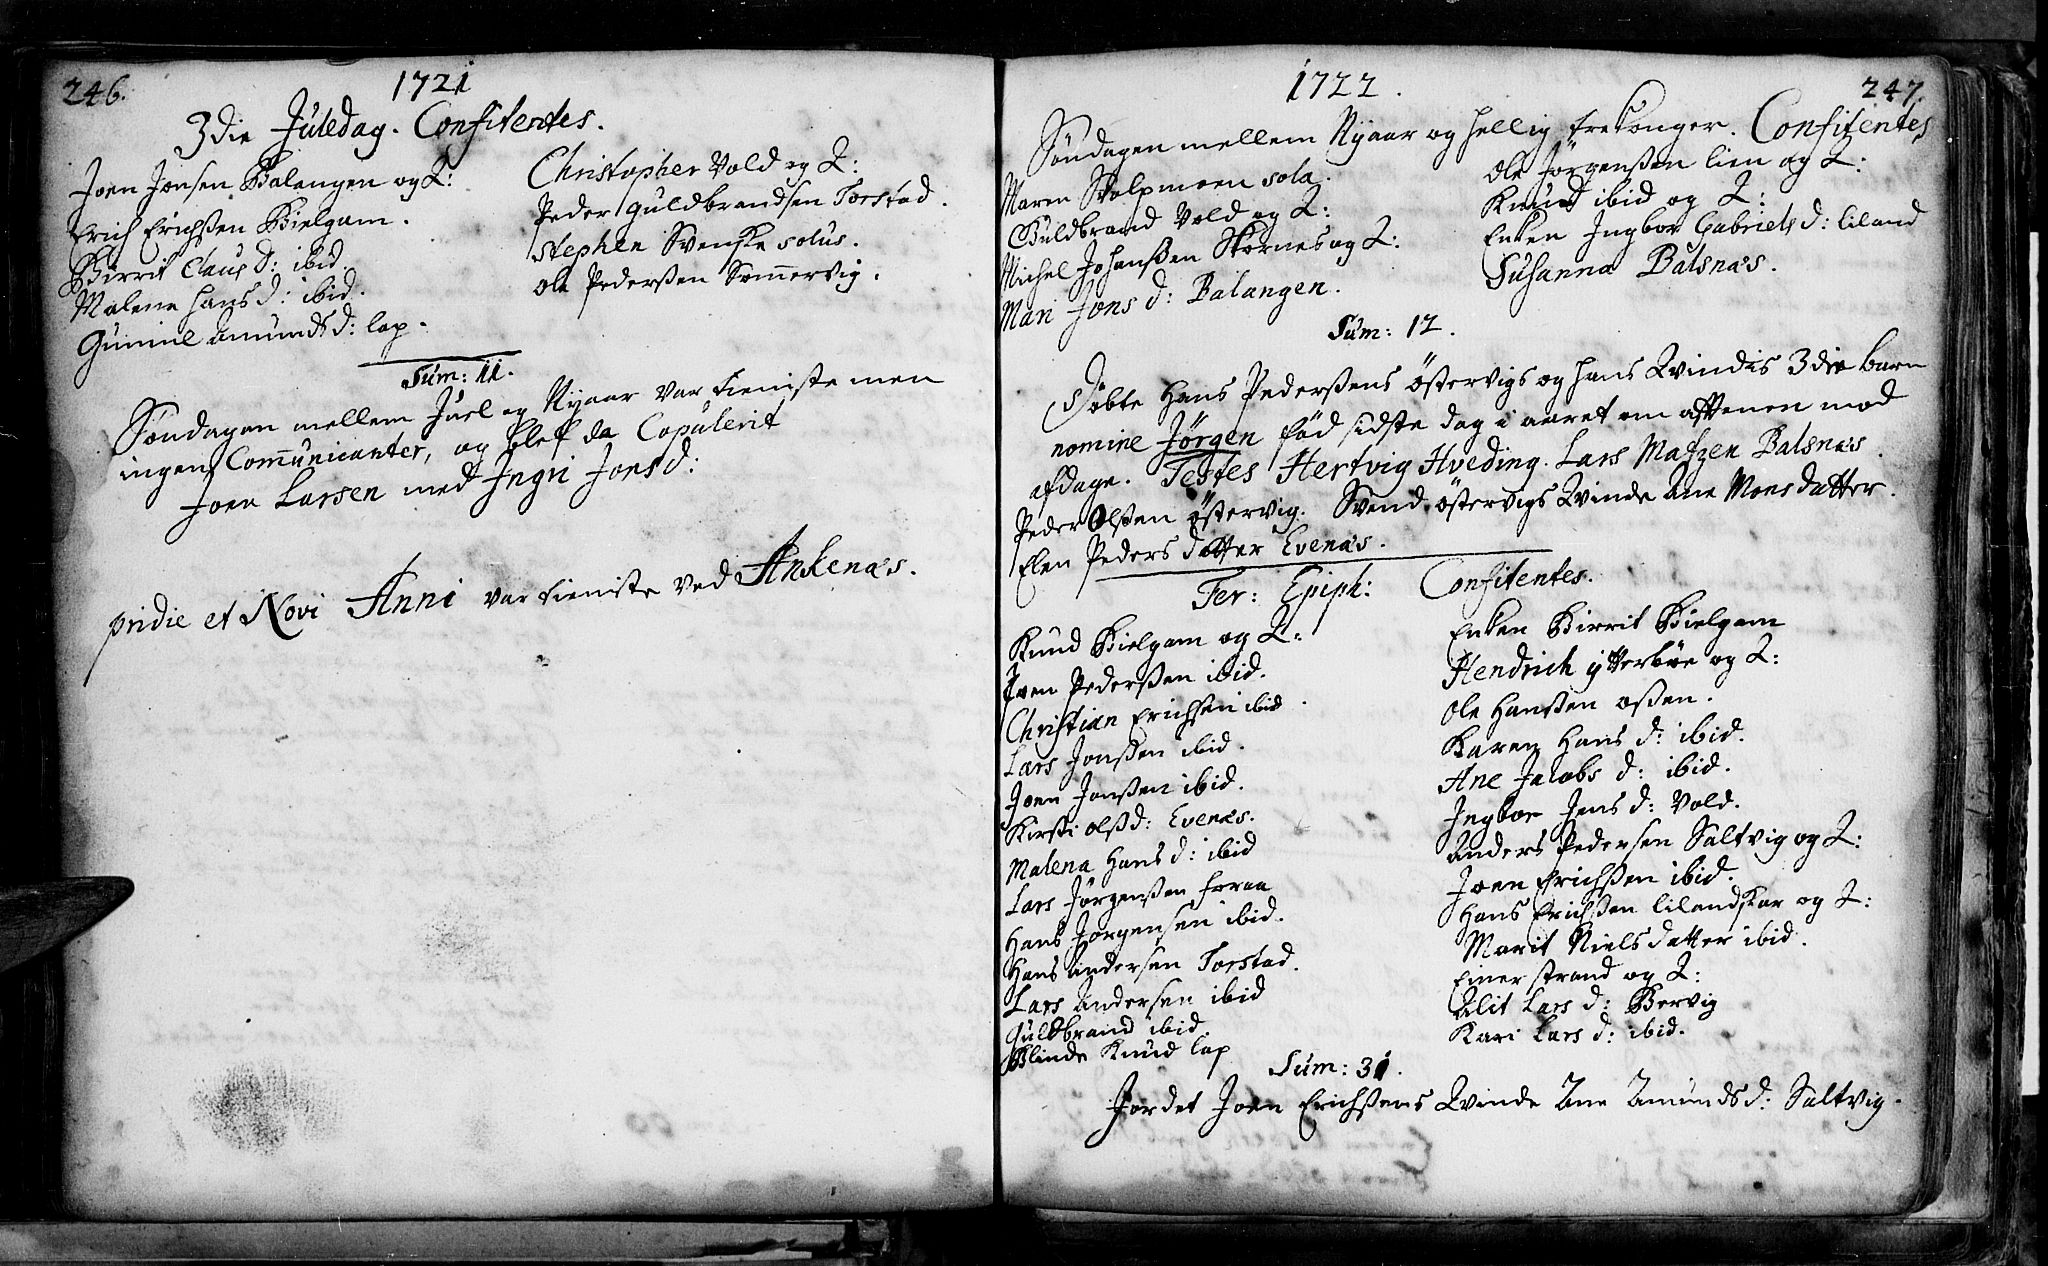 246.
1721
3die Juledag. Confitentes.
Joen Jonsen Balangen og Q:
Erich Erichßen Bielgam.
Birrit Claus d: ibid.
Malene Hans d: ibid.
Gunnil Amunds d: lap.
Christopher Vold og Q:
Peder Guldbrandsen Torstad.
Stephen Svenske solus.
Ole Pederßen Sommervig.
Sum: 11.
Søndagen mellem Juel og Nyaar var tieniste men
ingen Comunicanter, og blef da Copulerit
Joen Larsen med Ingri Jonsd:
pridie et Novi Anni var tieniste ved Ankenæs.
1722.
247.
Søndagen mellem Nyaar og hellig trekonger. Confitentes
Maren Stolpmoen sola.
Guldbrand Vold og Q:
Michel Johanßen Skornes og Q:
Mari Jons d: Balangen.
Ole Jørgenßen lien og Q:
Knud ibid og Q:
Enken Ingbor Gabriels d: liland
Susanna Balsnæs.
Sum: 12.
Døbte Hans Pederßens østervigs og hans Qvindis 3die barn
nomine Jørgen fød sidste dag i aaret om afftenen mod
afdage. Testes Hertvig Hveding. Lars Matzen Balsnæs.
Peder Olßen østervig. Svend østervigs Qvinde Ane Monsdatter.
Elen Peders datter Evenæs.
Fer: Epiph: Confitentes.
Knud Bielgam og Q:
Joen Pederßen ibid.
Christian Erichsen ibid.
Lars Jonßen ibid.
Joen Jonßen ibid.
Kirsti Olßd: Evenæs.
Malena Hans d: ibid
Lars Jørgenßen foraa
Hans Jørgensen ibid.
Hans Andersen Torstad.
Lars Andersen ibid
Guldbrand ibid.
Blinde Knud lap
Enken Birrit Bielgam
Hendrich ytterbøe og Q:
Ole Hanßen oßen.
Karen Hans d: ibid.
Ane Jacobs d: ibid.
Ingbor Jens d: Vold.
Anders Pedersen Saltvig og Q:
Joen Erichßen ibid.
Hans Erichßen lilandskar og Q:
Marit Nielsdatter ibid.
Einer strand og Q:
Alit Lars d: Bervig
Kari Lars d: ibid.
Sum: 31.
Jordet Joen Erichßens Qvinde Ane Amundsd: Saltvig.